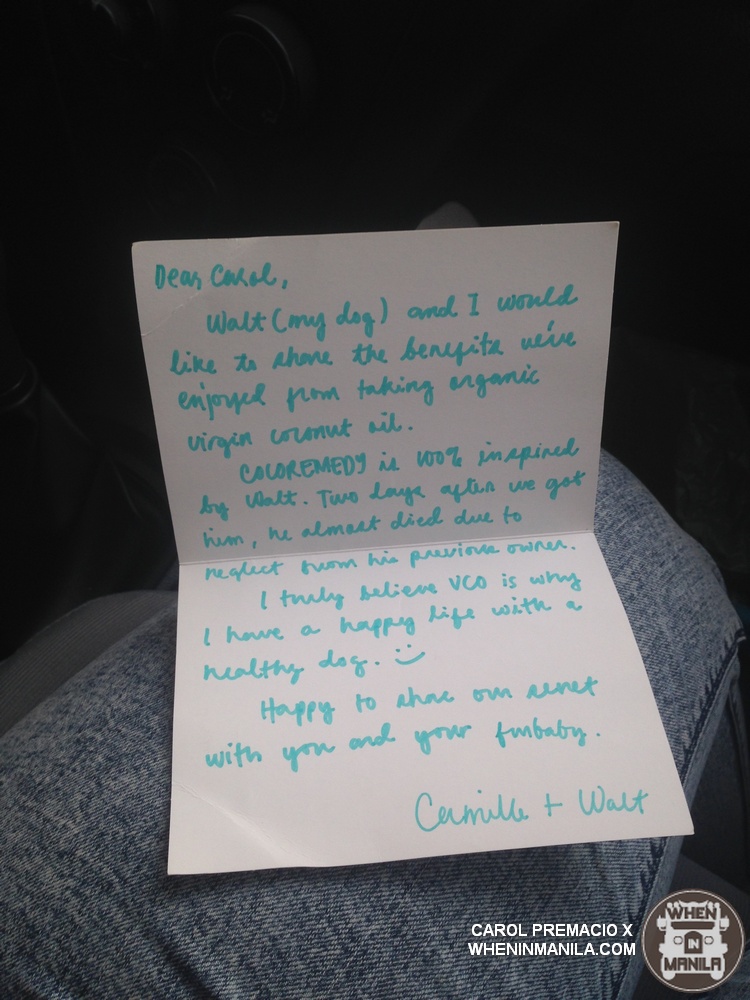 Dear Carol,
Walt (my dog) and I would
like to share the benefits we've
enjoyed from taking organic
virgin coconut oil.
COCOREMEDY is 100% inspired
by Walt. Two days after we got
him, he almost died due to
neglect from his previous owner.
I truly believe VCO is why
I have a happy life with a
healthy dog. :)
Happy to share our secret
with you and your furbaby.
Camille + Walt
CAROL PREMACIO X
WHENINMANILA.COM
WHEN
IN
MANILA